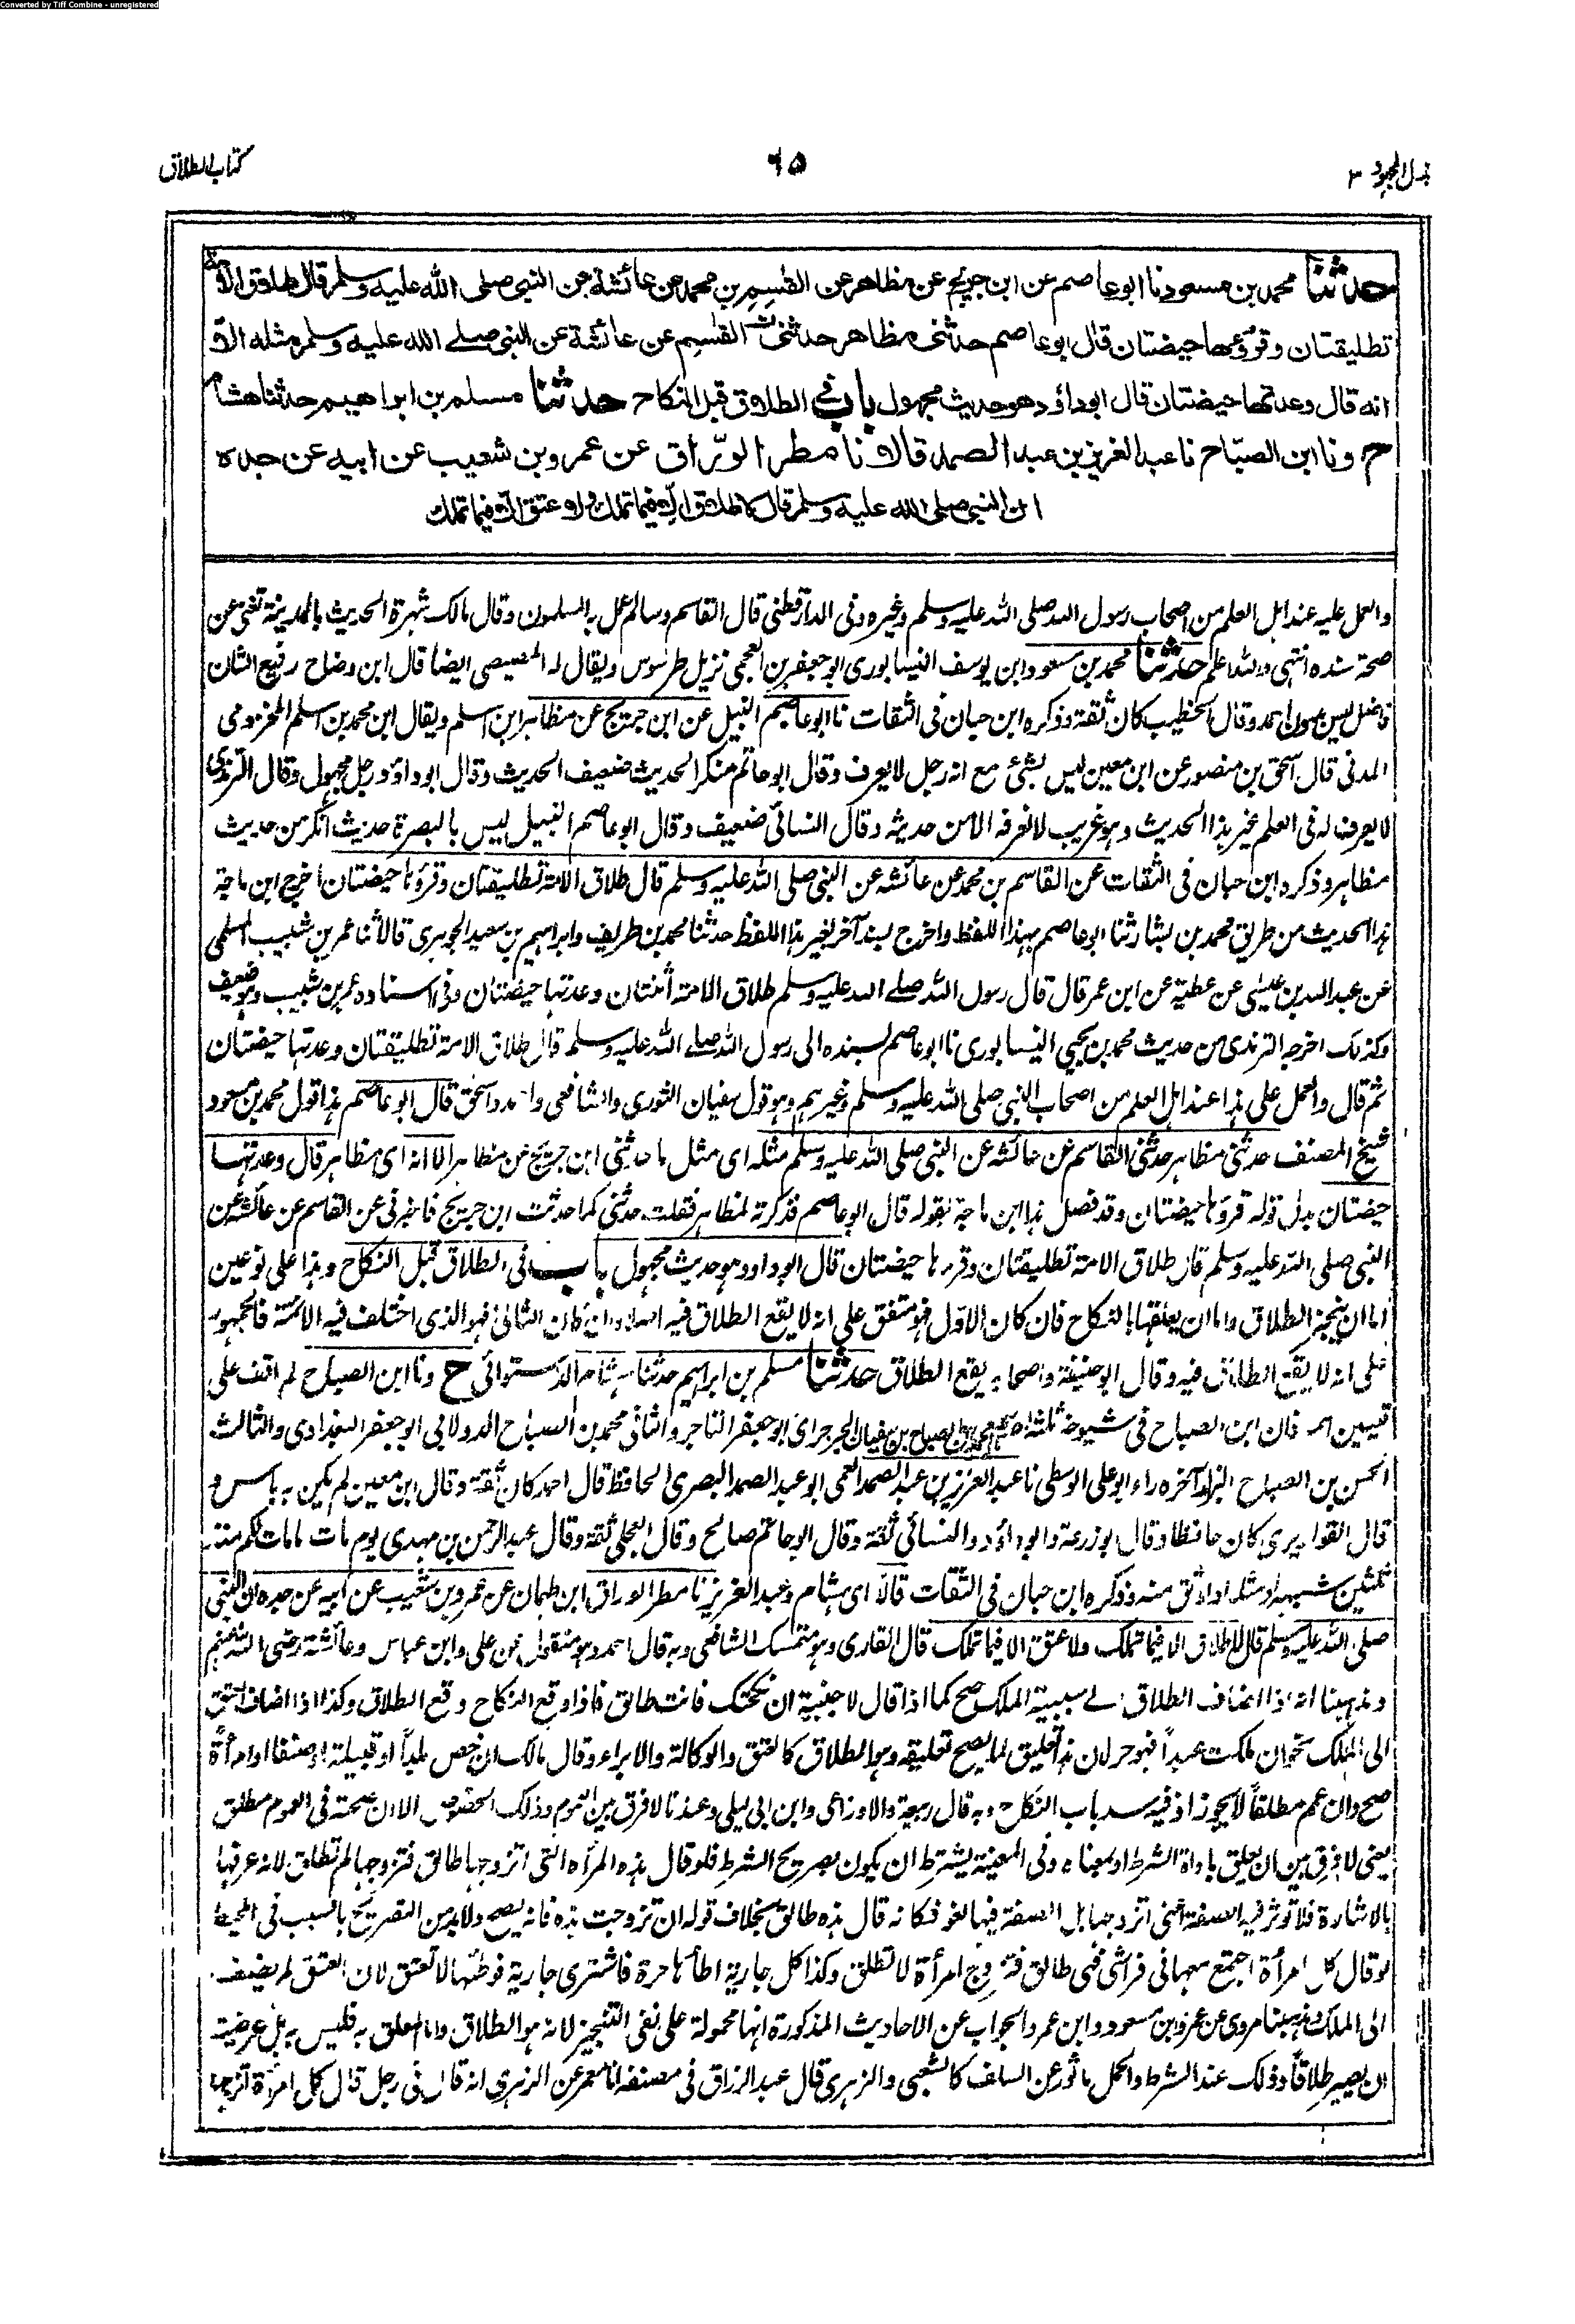 Converted by Tiff Combine - unregistered
بذل المجهود ٣
٦٥
كتاب الطلاق
حدثنا محمد بن مسعود نا ابو عاصم عن ابن جريج عن مظاهر عن القسم بن محمد عن عائشة عن النبي صلى الله عليه وسلم قال طلاق الامة
تطليقتان وقروءها حيضتان قال ابو عاصم حدثني مظاهر حدثني القسم عن عائشة عن النبي صلے الله عليه وسلم مثله الا
انه قال وعدتها حيضتان قال ابو داؤد وهو حديث مجهول باب في الطلاق قبل النكاح حدثنا مسلم بن ابراهيم حدثنا هشام
ح ونا ابن الصباح نا عبد العزيز بن عبد الصمد قالا نا مطر الورّاق عن عمرو بن شعيب عن ابيه عن جده
ان النبي صلى الله عليه وسلم قال لا طلاق الا فيما تملك ولا عتق الا فيما تملك
والعمل عليه عند اهل العلم من اصحاب رسول الله صلى الله عليه وسلم وغيره وفي الدارقطني قال القاسم وسالم عمل به المسلمون وقال مالك شهرة الحديث بالمدينة تغني عن
صحة سنده انتهى والله اعلم حدثنا محمد بن مسعود ابن يوسف النيسابوري ابو جعفر بن العجمي نزيل طرسوس ويقال له المصيصي ايضا قال ابن وضاح رفيع الشان
فاضل ليس بدون احمد وقال الخطيب كان ثقة وذكره ابن حبان في الثقات نا ابو عاصم النبيل عن ابن جريج عن مظاهر ابن اسلم ويقال ابن محمد بن اسلم المخزومي
المدني قال اسحق بن منصور عن ابن معين ليس بشئ مع انه رجل لا يعرف وقال ابو حاتم منكر الحديث ضعيف الحديث وقال ابو داؤد رجل مجهول وقال الترمذي
لا يعرف له في العلم غير هذا الحديث وهو غريب لا نعرفه الا من حديثه وقال النسائي ضعيف وقال ابو عاصم النبيل ليس بالبصرة حديث انكر من حديث
مظاهر وذكره ابن حبان في الثقات عن القاسم بن محمد عن عائشة عن النبي صلى الله عليه وسلم قال طلاق الامة تطليقتان وقروءها حيضتان اخرج ابن ماجة
هذا الحديث من طريق محمد بن بشار ثنا ابو عاصم بهذا اللفظ واخرج بسند آخر بغير هذا اللفظ حدثنا محمد بن طريف وابراهيم بن سعيد الجوهري قالا ثنا عمر بن شبيب المسلمي
عن عبد الله بن عيسى عن عطية عن ابن عمر قال قال رسول الله صلے الله عليه وسلم طلاق الامة اثنتان وعدتها حيضتان وفي اسناده عمر بن شبيب وهو ضعيف
وكذلك اخرجه الترمذي من حديث محمد بن يحيى النيسابوري نا ابو عاصم بسنده الى رسول الله صلے الله عليه وسلم قال طلاق الامة تطليقتان وعدتها حيضتان
ثم قال والعمل على هذا عند اهل العلم من اصحاب النبي صلى الله عليه وسلم وغيرهم وهو قول سفيان الثوري والشافعي واحمد واسحق قال ابو عاصم هذا قول محمد بن مسعود
شيخ المصنف حدثني مظاهر حدثني القاسم عن عائشة عن النبي صلى الله عليه وسلم مثله اي مثل ما حدثني ابن جريج عن مظاهر الا انه اي مظاهر قال وعدتها
حيضتان بدل قوله قروءها حيضتان وقد فصل هذا ابن ماجة بقوله قال ابو عاصم فذكرته لمظاهر فقلت حدثني كما حدثت ابن جريج فاخبرني عن القاسم عن عائشة عن
النبي صلى الله عليه وسلم قال طلاق الامة تطليقتان وقرءها حيضتان قال ابو داود وهو حديث مجهول باب في الطلاق قبل النكاح وهذا على نوعين
اما ان ينجز الطلاق واما ان يعلقها بالنكاح فان كان الاول فهو متفق على انه لا يقع الطلاق فيه وان كان الثاني فهو الذي اختلف فيه الائمة فالجمهور
على انه لا يقع الطلاق فيه وقال ابو حنيفة واصحابه يقع الطلاق حدثنا مسلم بن ابراهيم حدثنا هشام الدستوائي ح ونا ابن الصباح لم اقف على
تعيين اسمه فان ابن الصباح في شيوخه ثلثة احدهم محمد بن الصباح بن سفيان الجرجراي ابو جعفر التاجر والثاني محمد بن الصباح الدولابي ابو جعفر البغدادي والثالث
الحسن بن الصباح البزار آخره راء ابو علي الوسطي نا عبد العزيز بن عبد الصمد العمي ابو عبد الصمد البصري الحافظ قال احمد كان ثقة وقال ابن معين لم يكن به باس و
قال القواريري كان حافظا وقال ابو زرعة وابو داؤد والنسائي ثقة وقال ابو حاتم صالح وقال العجلي ثقة وقال عبد الرحمن بن مهدي يوم مات ما مات لكم منذ
ثلثين شبهه او مثله او اوثق منه وذكره ابن حبان في الثقات قالا اي هشام وعبد العزيز نا مطر الوراق ابن طهمان عن عمرو بن شعيب عن ابيه عن جده ان النبي
صلى الله عليه وسلم قال لا طلاق الا فيما تملك ولا عتق الا فيما تملك قال القاري وهو متمسك الشافعي وبه قال احمد وهو منقول عن علي وابن عباس وعائشة رضي الله عنهم
ومذهبنا انه اذا اضاف الطلاق الے سببية الملك صح كما اذا قال لاجنبية ان نكحتك فانت طالق فاذا وقع النكاح وقع الطلاق وكذا اذا اضاف العتق
الى الملك نحو ان ملكت عبداً فهو حر لان هذا تعليق لما يصح تعليقه وهو الطلاق كالعتق والوكالة والابراء وقال مالك ان خص بلداً او قبيلة او صنفا او امرأة
صح وان عم مطلقاً لا يجوز اذ فيه سد باب النكاح وبه قال ربيعة والاوزاعي وابن ابي ليلى وعندنا لا فرق بين العموم وذلك الخصوص الا ان صحته في العموم مطلق
يعني لا فرق بين ان يعلق باداة الشرط او بمعناه وفي المعينة يشترط ان يكون بصريح الشرط فلو قال هذه المرأة التي اتزوجها طالق فتزوجها لم تطلق لانه عرفها
بالاشارة فلا تؤثر فيه الصفة اعني اتزوجها بل الصفة فيها لغو فكانه قال هذه طالق بخلاف قوله ان تزوجت هذه فانه يصح ولا بد من التصريح بالسبب في المحيط
لو قال كل امرأة اجتمع معها في فراشي فهي طالق فتزوج امرأة لا تطلق وكذا كل جارية اطأها حرة فاشترى جارية فوطئها لا تعتق لان العتق لم يضف
الى الملك ومذهبنا مروي عن عمر وابن مسعود وابن عمر والجواب عن الاحاديث المذكورة انها محمولة على نفي التنجيز لانه هو الطلاق واما المعلق به فليس به بل عرضية
ان يصير طلاقاً وذلك عند الشرط والحمل ماثور عن السلف كالشعبي والزهري قال عبد الرزاق في مصنفه انا معمر عن الزهري انه قال في رجل قال كل امرأة اتزوجها